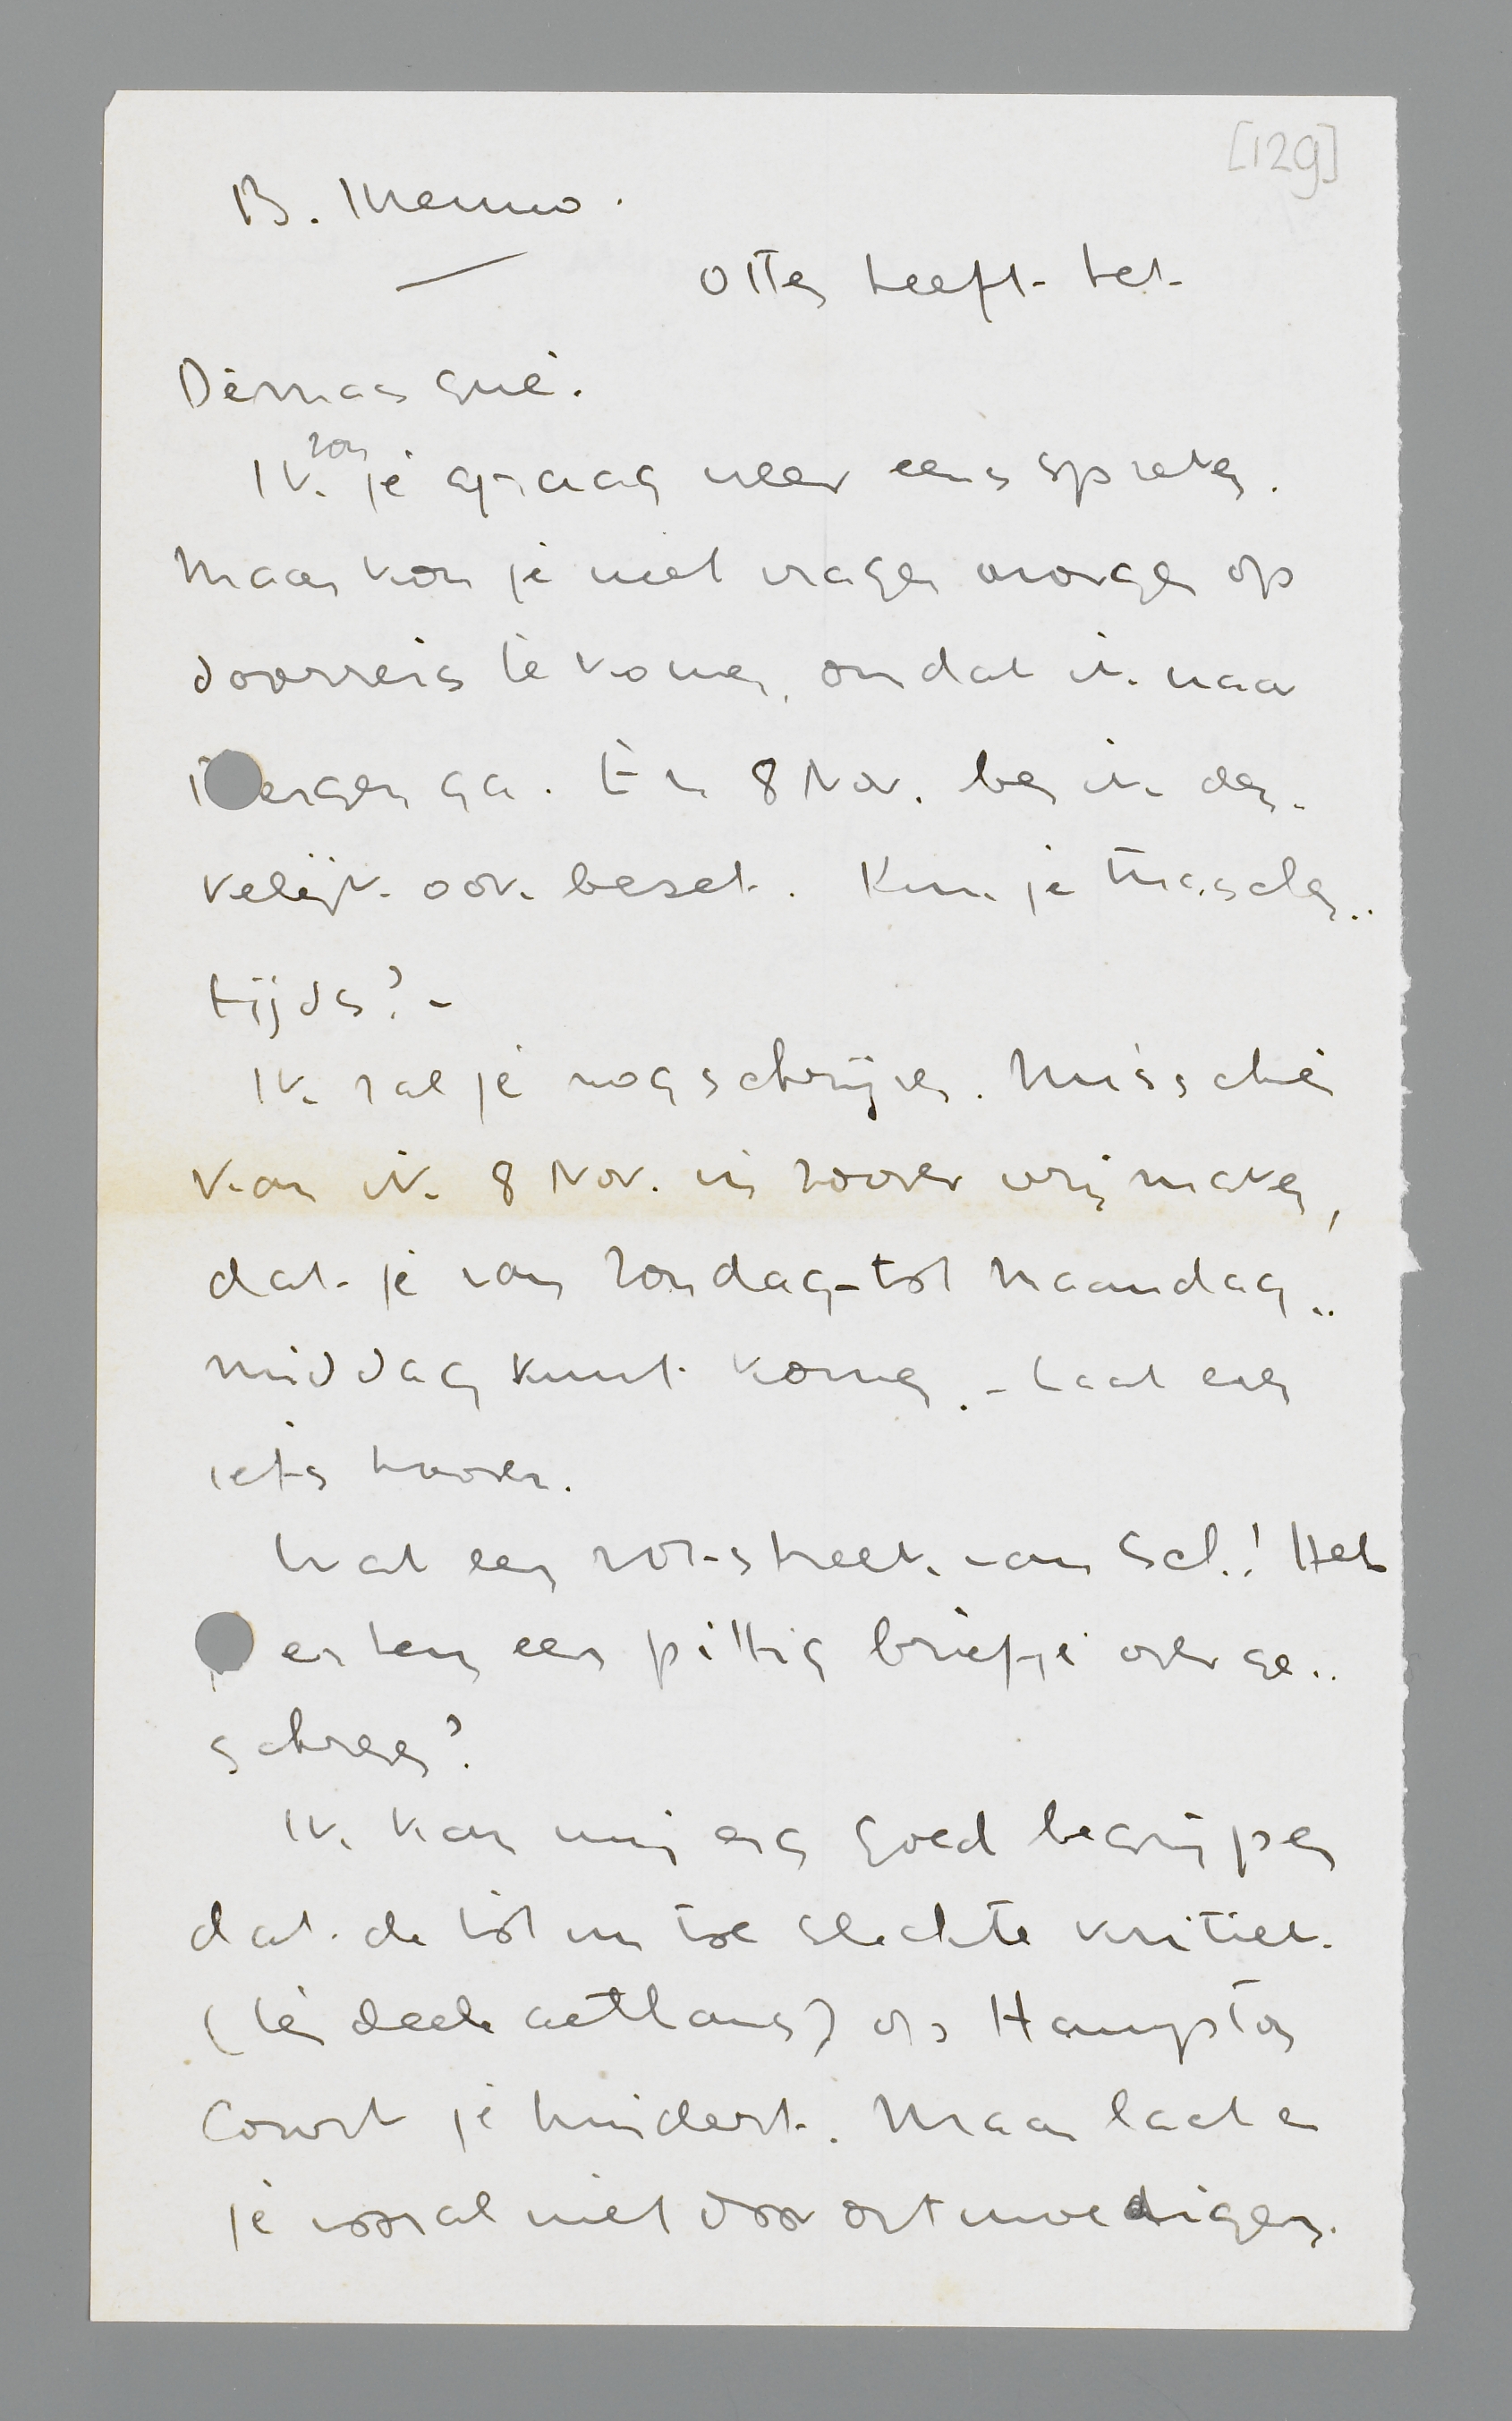 [129]
B. Menno.
Otten heeft het
Démasqué.
Ik zou je graag weer eens spreken.
Maar kon je niet vragen morgen op
doorreis te komen, omdat ik naar
Bergen ga. En 8 Nov. ben ik den-
kelijk ook bezet. Kun je tusschen-
tijds? -
Ik zal je nog schrijven. Misschien
kan ik 8 Nov. in zoover vrij maken,
dat je van Zondag-tot Maandag-
middag kunt komen. - Laat even
iets hooren.
Wat een rot-streek van Sch.! Heb
je er hem een pittig briefje over ge-
schreven?
Ik kan mij erg goed begrijpen
dat de tot nu toe slechte kritiek
(ten deele althans) op Hampton
Court je hindert. Maar laat er
je vooral niet door ontmoedigen.